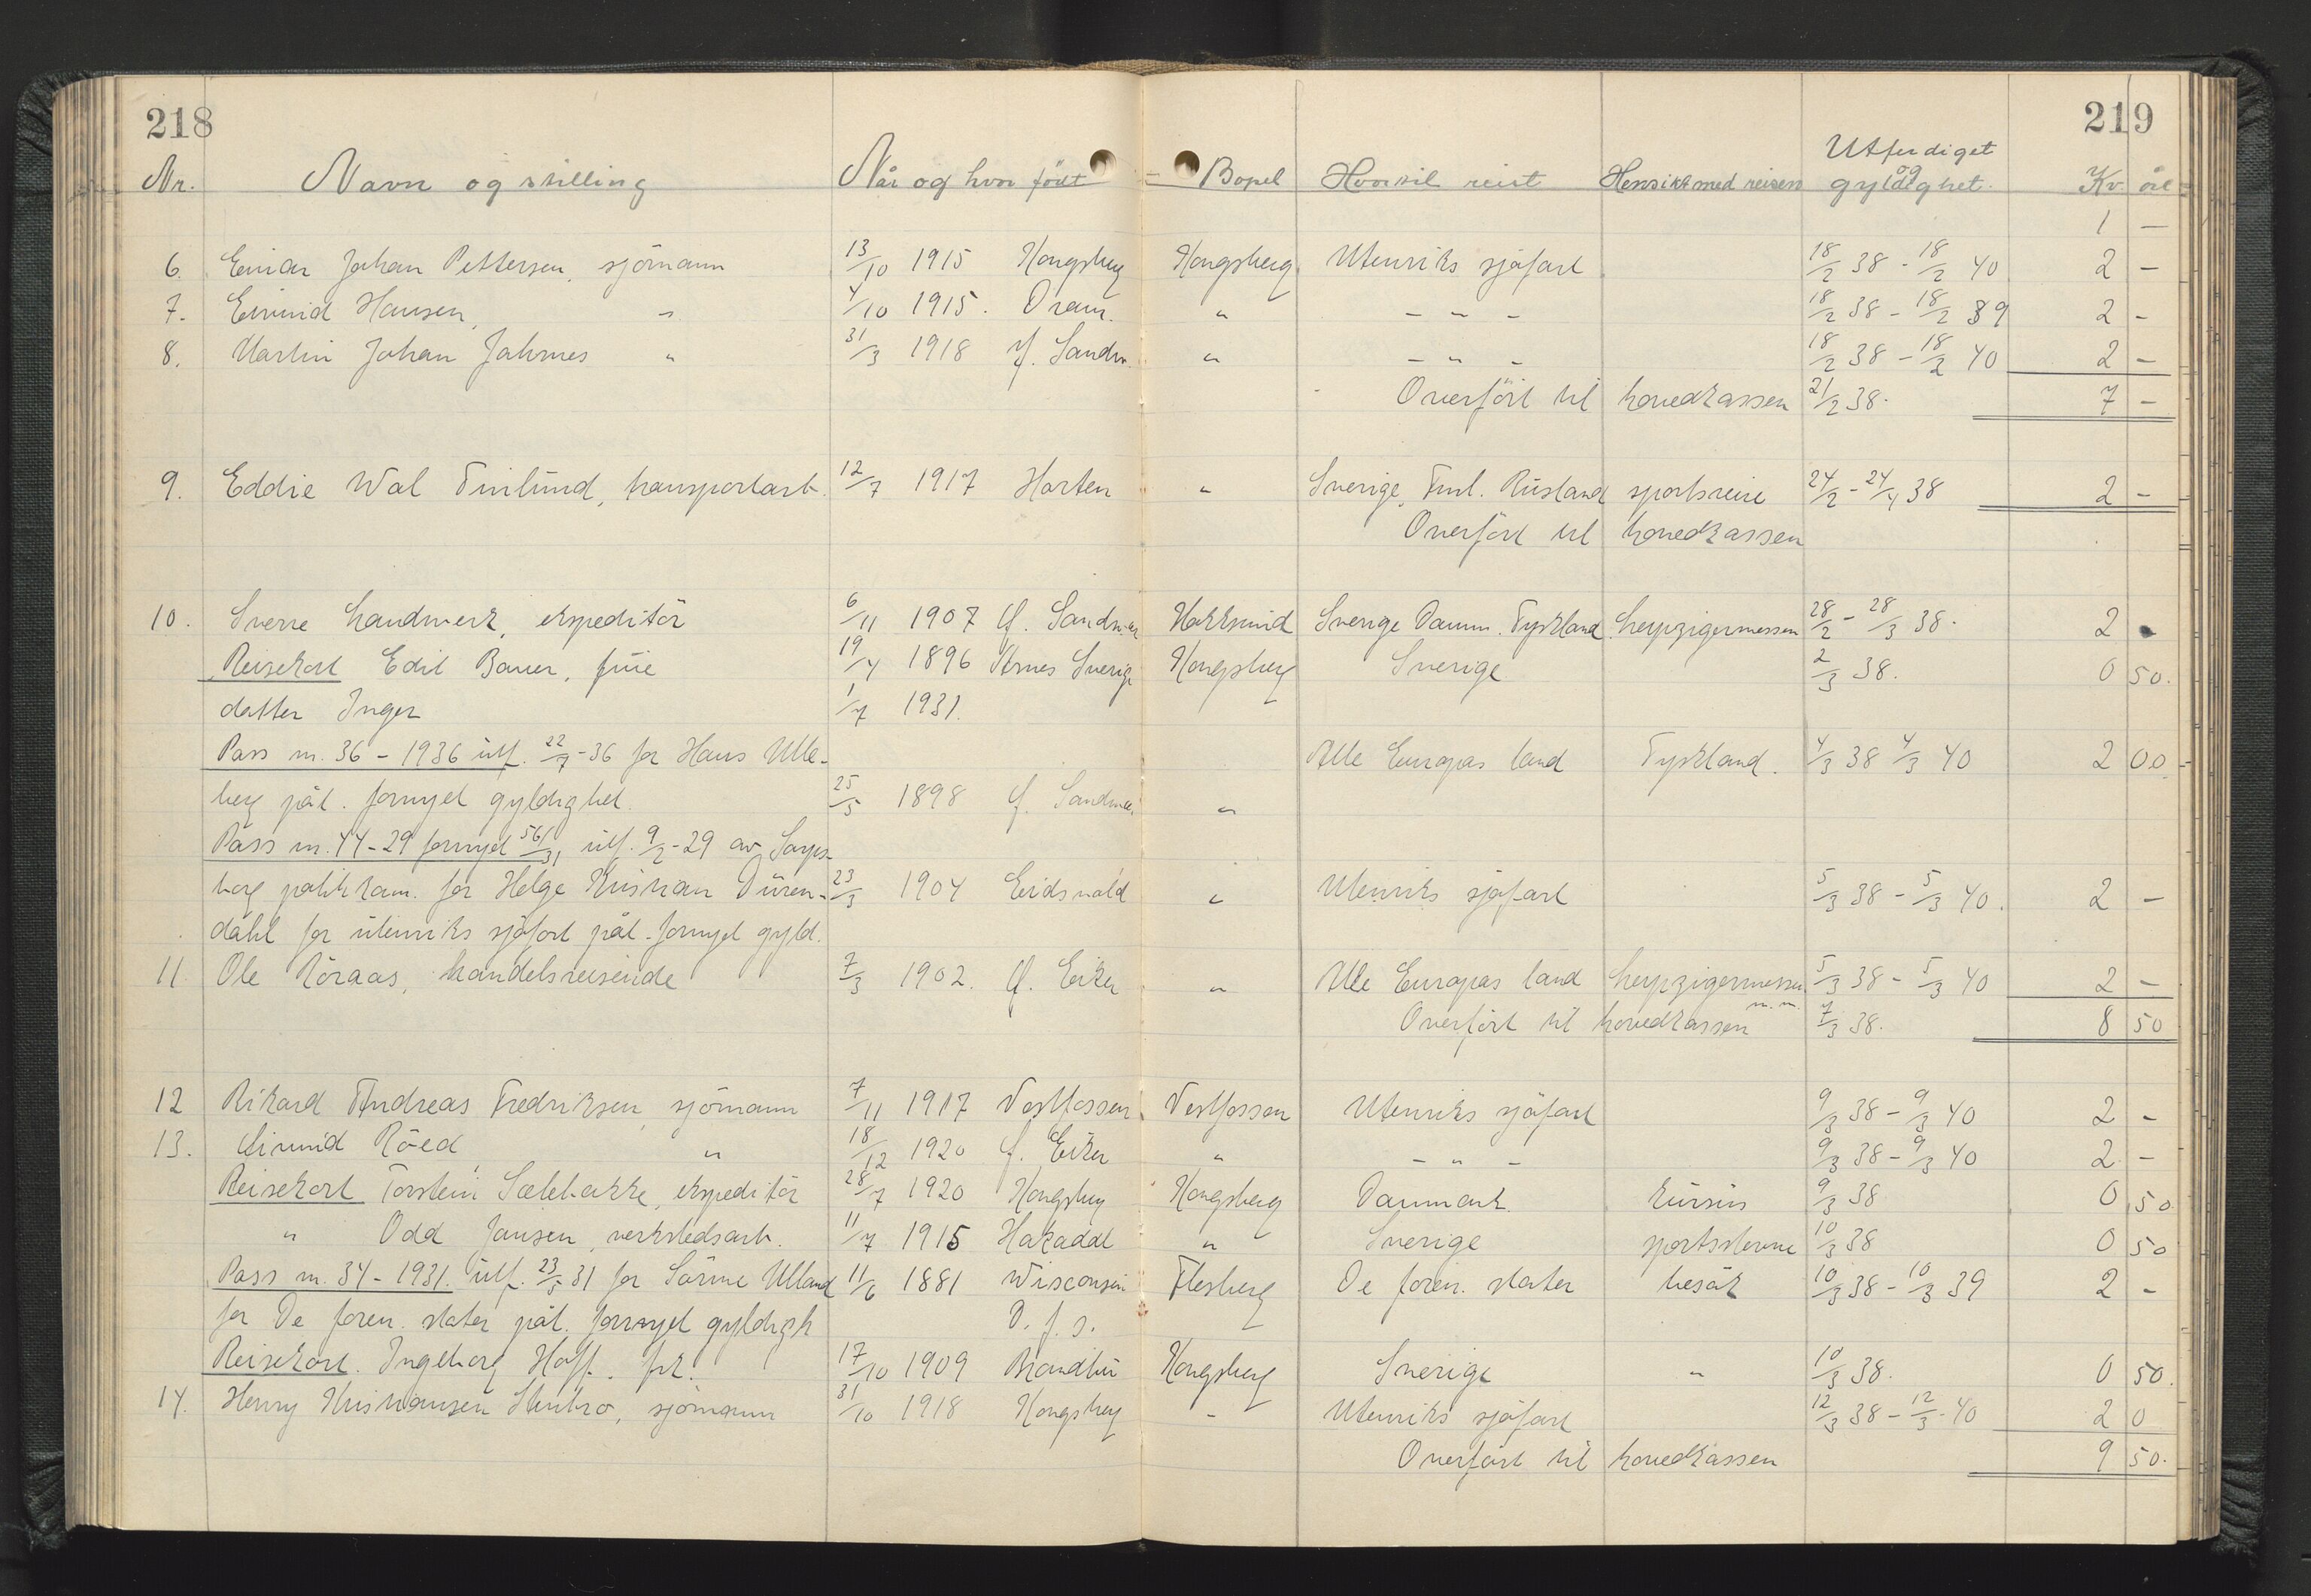 218 219
Nr. Navn og stilling Når og hvor født Bopel Hvortil reist Hensikt med reisen Utferdiget og gyldighet. Kr. öre
1 —
6. Einar Johan Pettersen, sjömann 13/10 1915 Kongsberg Kongsberg Utenriks sjöfart 18/2 38 - 18/2 40 2 -
7. Eivind Hansen, " 4/10 1915. Dram. " - " - 18/2 38 - 18/2 39 2 -
8. Martin Johan Jahrnes " 31/3 1918 Y. Sandsv. " - " - 18/2 38 - 18/2 40 2 -
Overfört til hovedkassen 21/2 38. 7 -
9. Eddie Wal Finlund, transportarb. 12/7 1917 Horten " Sverige, Finl. Rusland sportsreise 24/2 - 24/4 38 2 -
Overfört til hovedkassen
10. Sverre Landverk, ekspeditör 6/11 1907 Y. Sandsver Hokksund Sverige Danm. Tyskland Leipzigermessen 28/2 - 28/3 38. 2 -
Reisekort Edit Bauer, frue 19/4 1896 Årnes Sverige Kongsberg Sverige 2/3 38. 0 50.
datter Inger 1/7 1931.
Pass nr. 36 - 1936 utf. 22/7 - 36 for Hans Ulle- Alle Europas land Tyskland. 4/3 38 4/3 40 2 00
berg påt. fornyet gyldighet. 25/5 1898 Y. Sandsver "
Pass nr. 44-29 fornyet 56/31, utf. 9/2 - 29 av Sarps-
borg politikam. for Helge Kristian Düren- 23/3 1904 Eidsvold " Utenriks sjöfart 5/3 38 - 5/3 40. 2 -
dahl for utenriks sjöfart påt. fornyet gyld.
11. Ole Röraas, handelsreisende 7/3 1902. Ø. Eiker " Alle Europas land Leipzigermessen m.m. 5/3 38 - 5/3 40 2 -
Overfört til hovedkassen 7/3 38. 8 50
12 Rikard Andreas Fredriksen, sjömann 7/11 1917 Vestfossen Vestfossen Utenriks sjöfart 9/3 38 - 9/3 40 2 -
13. Eivind Röed " 18/12 1920 Ø. Eiker " - " - 9/3 38 - 9/3 40 2 -
Reisekort Torstein Sælebakke, ekspeditör 28/7 1920 Kongsberg Kongsberg Danmark kursus 9/3 38 0 50.
" Odd Jansen, verkstedsarb. 11/7 1915 Hakadal " Sverige sportsstevne 10/3 38 0 50
Pass nr. 34 - 1931. utf. 23/5 31 for Sörine Ulland 11/6 1881 Wisconsin Flesberg De foren. stater besök 10/3 38 - 10/3 39 2 -
for De foren. stater påt. fornyet gyldigh D. f. s.
Reisekort. Ingeborg Hoff. frk. 17/10 1909 Brandbu Kongsberg Sverige " 10/3 38. 0 50.
14. Henry Kristiansen Stenbro, sjömann 31/10 1918 Kongsberg - Utenriks sjöfart 12/3 38 - 12/3 - 40 2 0
Overfört til hovedkassen 9 50.